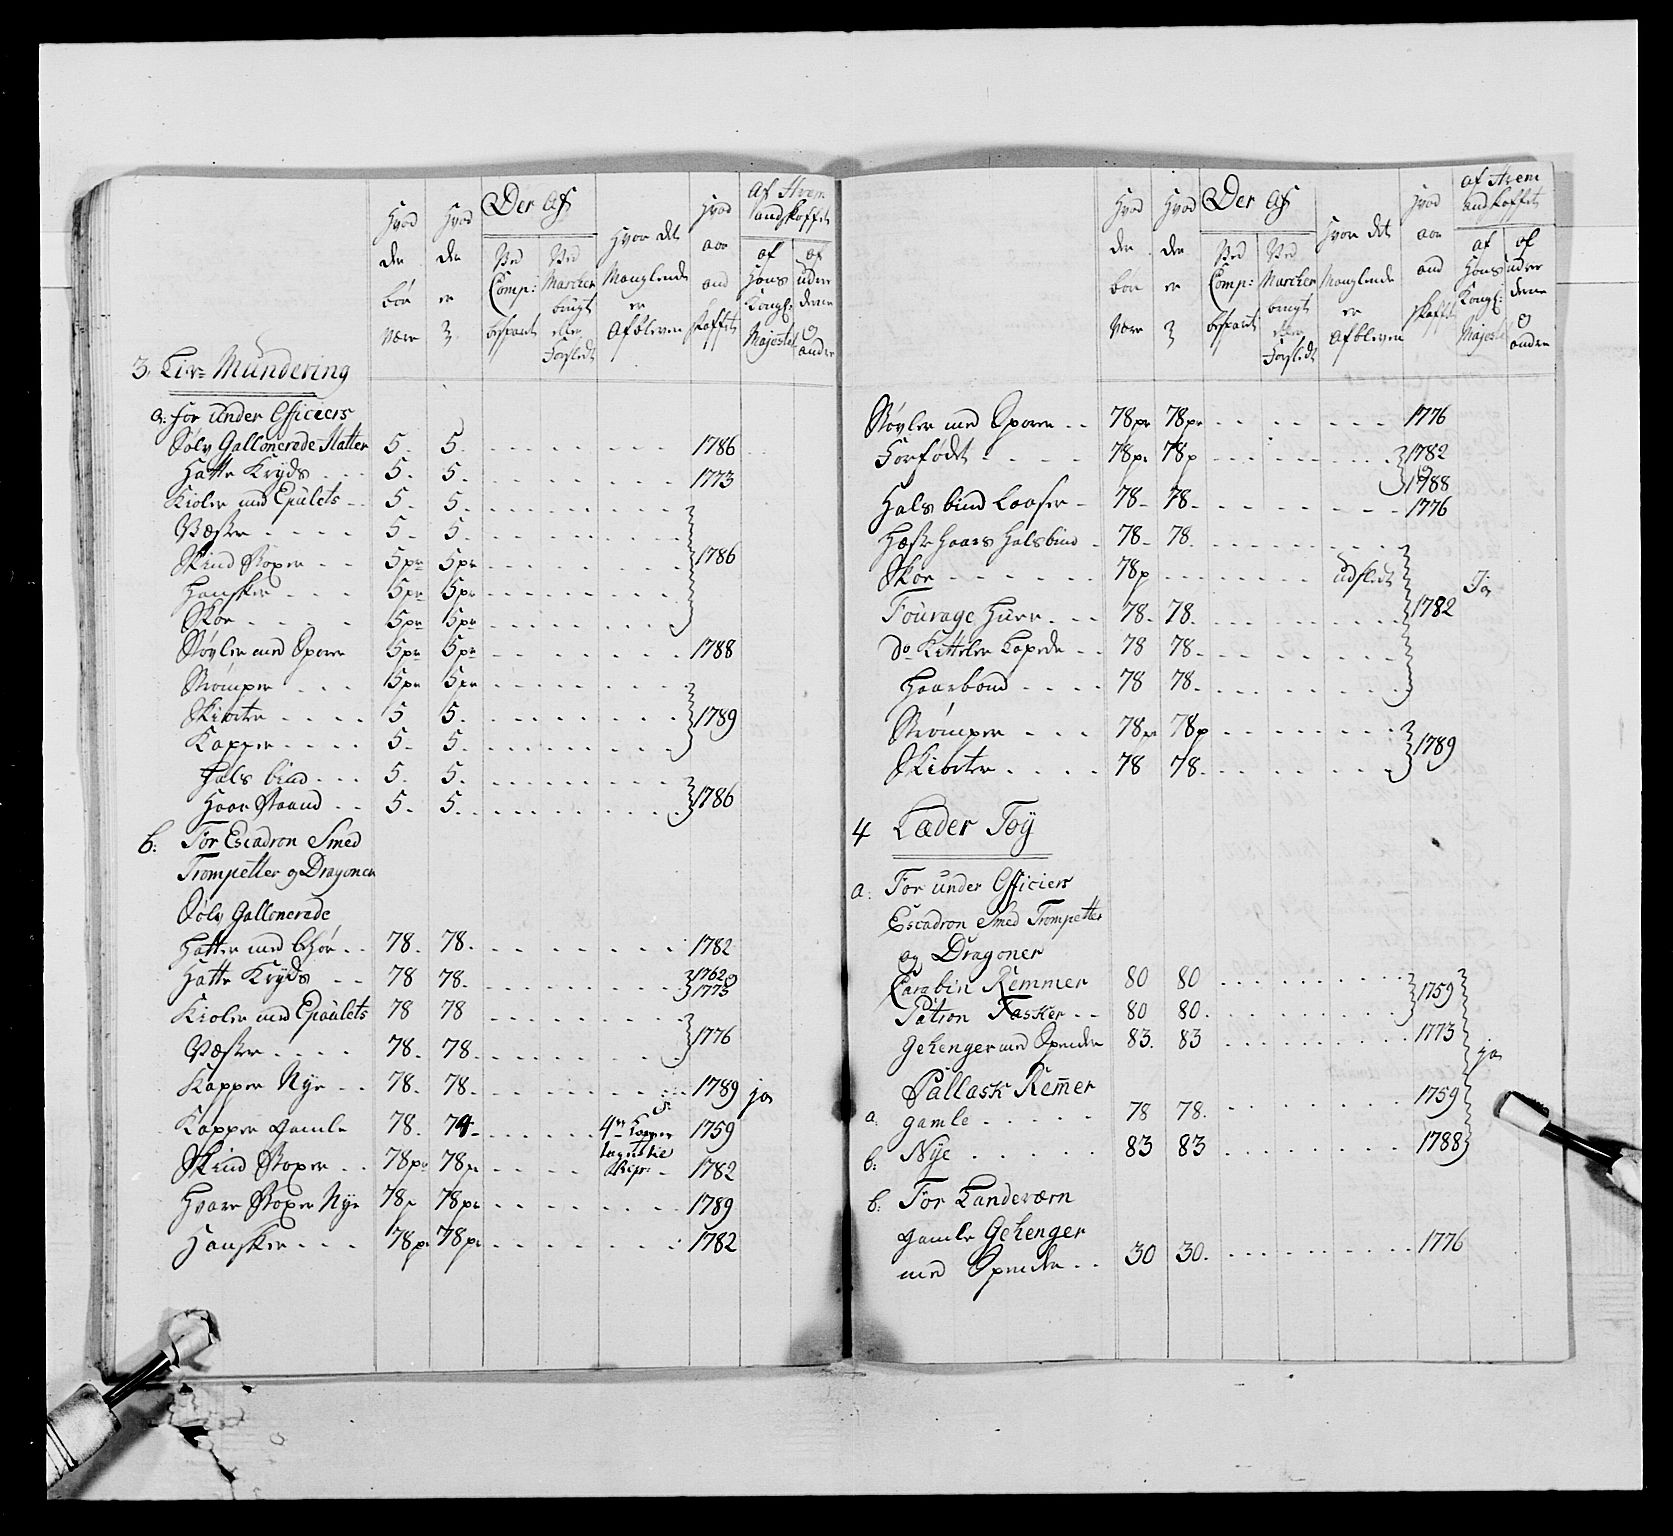 Hvad der bør være
Hvad der er
Der Af
Ved Comp: bespart
Ved Marcher brugt eller forslidt
Hvor det Manglende er Afbleven
Hvad aar and skaffet
Af Hvem andskaffet
af Hans Kongl: Majestet
af udre derne og andre
3. Liv= Mundering
a: for under Officiers
Sølv Gallonerede Hatter 5. 5. 1786
Hatte Kryds 5. 5. 1773
Kioler med Epulets 5. 5.
Væster 5. 5.
Skind Boxer 5pr 5pr 1786
Hansker 5pr 5pr
Skoe 5pr 5pr
Støvler med Sporer 5pr 5pr 1788
Strømper 5pr 5pr
Skiorter 5 5. 1789
Kapper 5. 5.
Hals bind 5. 5.
Haar Baand 5. 5. 1786
b: For Escadron Smed
Trompetter og Dragoner
Sølv Gallonerede
Hatter med 78. 78. 1782
Hatte Kryds 78 78. 1762 og 1773
Kioler med Epaulets 78 78
Væster 78. 78. 1776
Kapper Nye 78. 78. 1789 ja
Kapper Gamle 78. 74. 4re Kapper 1759
Skind Boxer 78pr 78pr 1782
Hvare Boxer Nye 78p 78pr 1789
Hansker 78pr 78pr 1782
Hvad der bør være
Hvad der er
Der Af
Ved Comp: bespart
Ved Marcher brugt eller forslidt
Hvor det Manglende er Afbleven
Hvad aar and skaffet
af Hvem andskaffet
af Hans Kongl: Majestet
af udre derne og andre
Støvler med Sporer 78pr 78pr 1776
Forfødt 78pr 78p 1782 og 1788
Hals bind Laaser 78 78. 1776
Hæste Haars Halsbind 78 78.
Skoe 78p udslidt Ja
Fourage Huer 78. 78. 1782
do Kitteler Lerreds 78 78.
Haarbond 78 78.
Strømper 78pr 78p
Skiorter 78 78. 1789
4 Læder Töÿ
a: For under Officiers
Escadron Smed Trompetter
og Dragoner
Carabin Remmer 80 80 1759
Patron Tasker 80 80.
Gehenger med Spender 83. 83 1773 ja
Pallask Remer
a. gamle 78 78. 1759
b: Nÿe 83 83 1788
b: For Landeværn
gamle Gehenger
med Spender 30 30. 1776